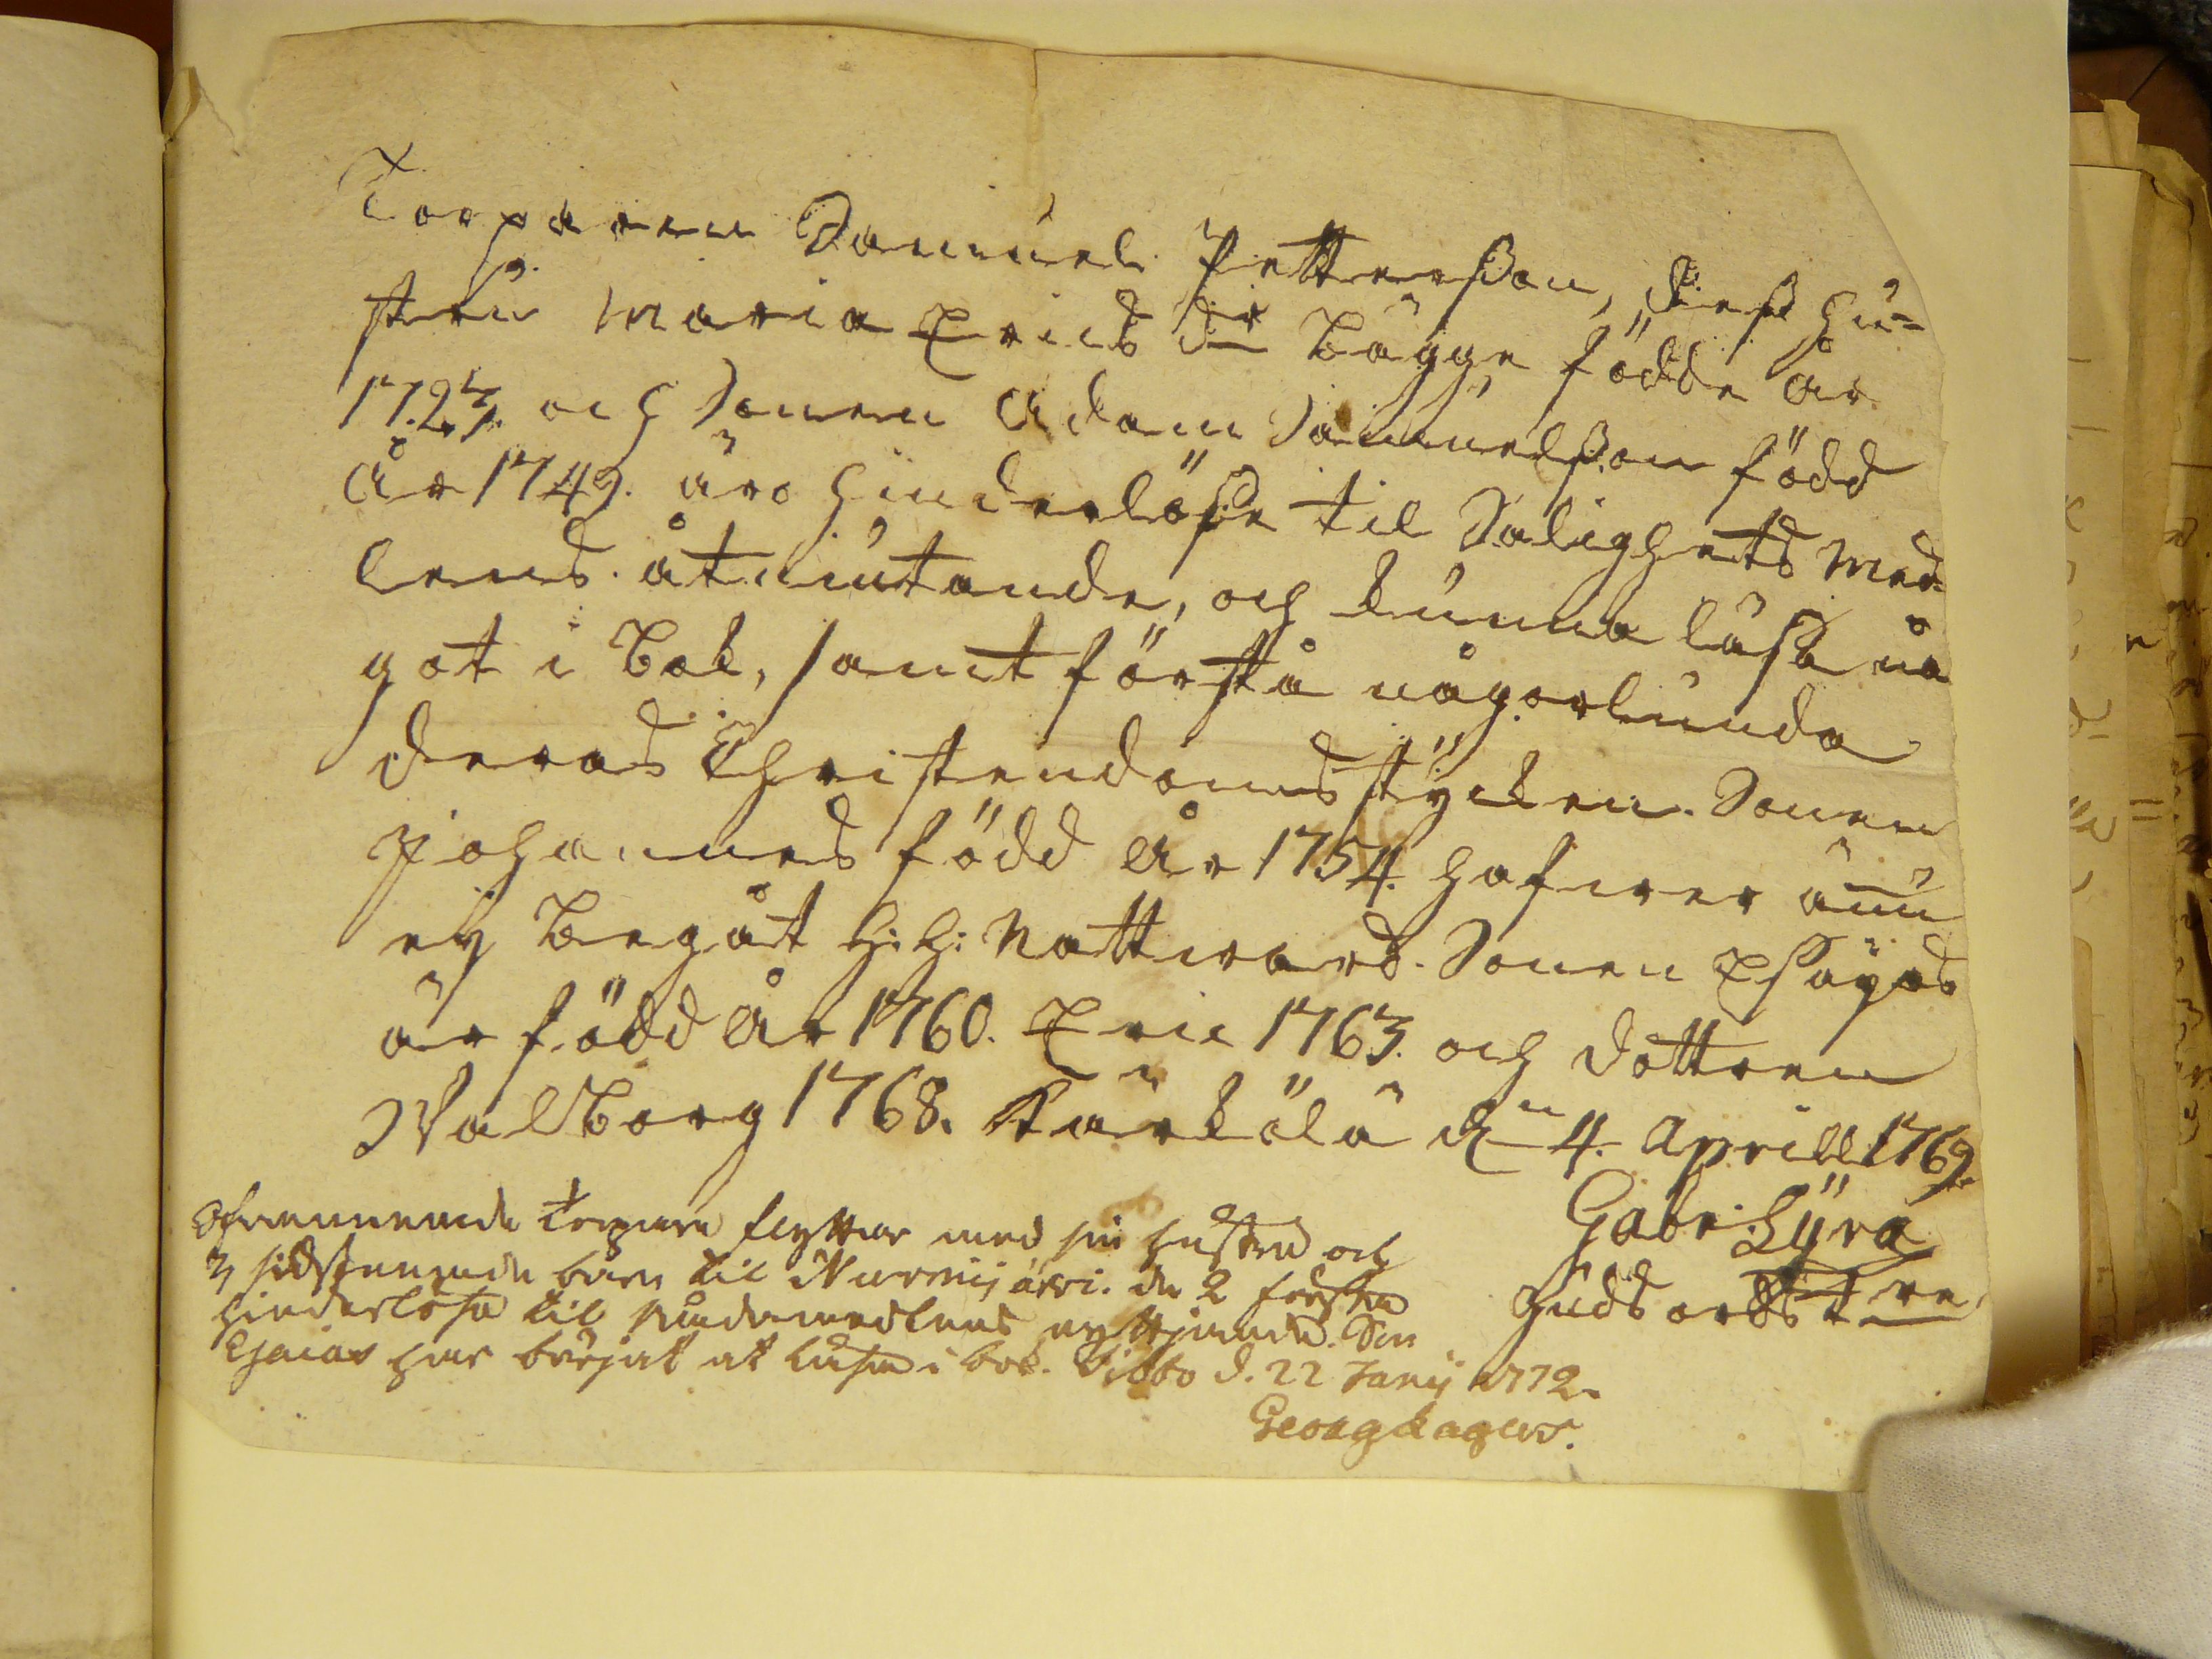 Torparen Samuel Pettersson, dess hu-
stru Maria Ericsdr bägge födde år
1727. och Sonen Adam Samuelsson född
År 1749. äro hinderlöse til Salighets Med-
lens åtniutande, och kunna läsa nå
got i Bok, samt förstå någorlunda
deras Christendoms stycken. Sonen
Johannes född År 1754. hafwer ännu
ey begåt H: H: Nattward. Sonen Esayas
är född År 1760. Eric 1763. och dottren
Walborg 1768. Kärkölä dn 4. Aprill 1769.
Gabr: Lyra
Guds ords tre
Ofwannemde Torpare flyttar med sin hustru och
3 sidstnemde barn til Nurmijärwi. de 2 förstne
hinderlösa til nådemedlens nyttjande. Son
Esaias har börjat at läsa i bok. Sibbo d. 22 Janij 1772.
Georg